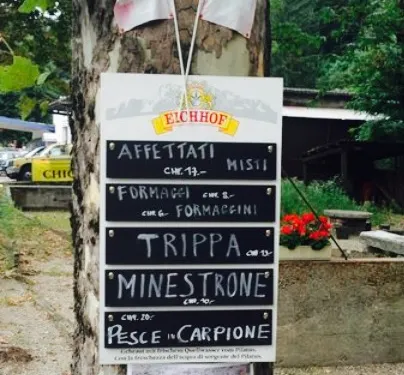 EICHHOF
AFFETTATI
MISTI
CHF. 17.-
FORMAGGI CHF. 8.-
CHF 6.- FORMAGGINI
TRIPPA CHF 13.-
MINESTRONE
CHF. 10.-
CHF. 20.-
PESCE in CARPIONE
Gebraut mit frischem Quellwasser vom Pilatus.
Con la freschezza dell'acqua di sorgente del Pilatus.
CHI